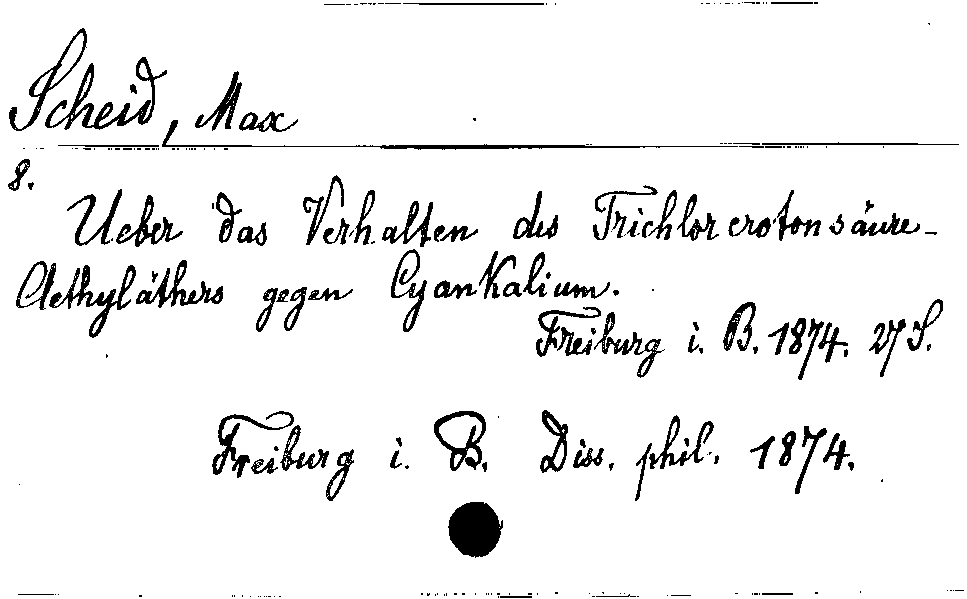 Scheid, Max
8.
Ueber das Verhalten des Trichlorcrotonsäure-
Aethyläthers gegen Cyankalium.
Freiburg i. B. 1874. 27 S.
Freiburg i. B. Diss. phil. 1874.